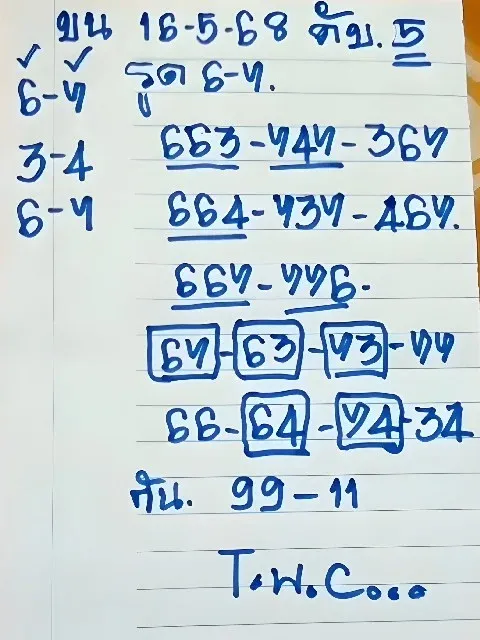 บน 16-5-68 ดับ. 5
6-7 รูด 6-7.
3-4 663-747-367
6-7 664-737-467.
667-776.
67-63-73-77
66-64-74-34
กัน. 99-11
T.พ.C...